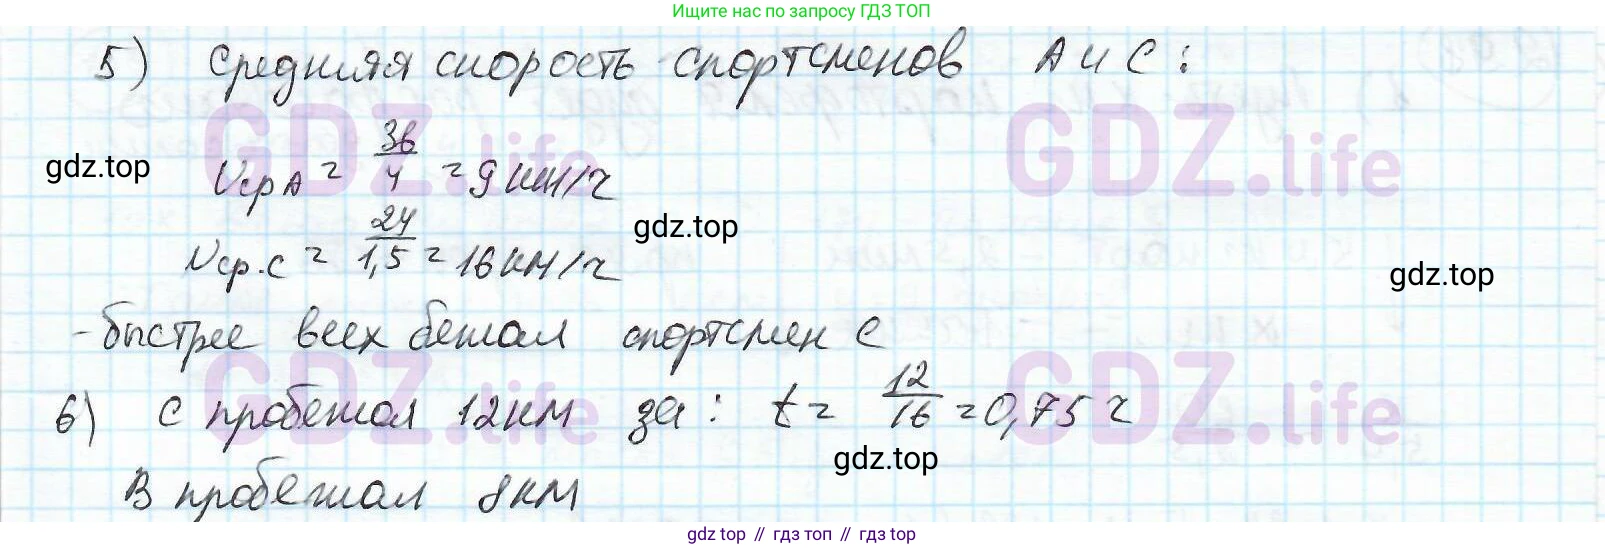 Ищите нас по запросу ГДЗ ТОП
5) Средняя скорость спортсменов А и С:
GDZ.life GDZ.life
gdz.top
Vср А = 36/4 = 9 км/ч
gdz.top
Vср.С = 24/1,5 = 16 км/ч
gdz.top
- быстрее всех бежал спортсмен С
GDZ.life GDZ.life
6) С пробежал 12 км за: t = 12/16 = 0,75 ч
gdz.top
В пробежал 8 км
gdz top // гдз топ // гдз top